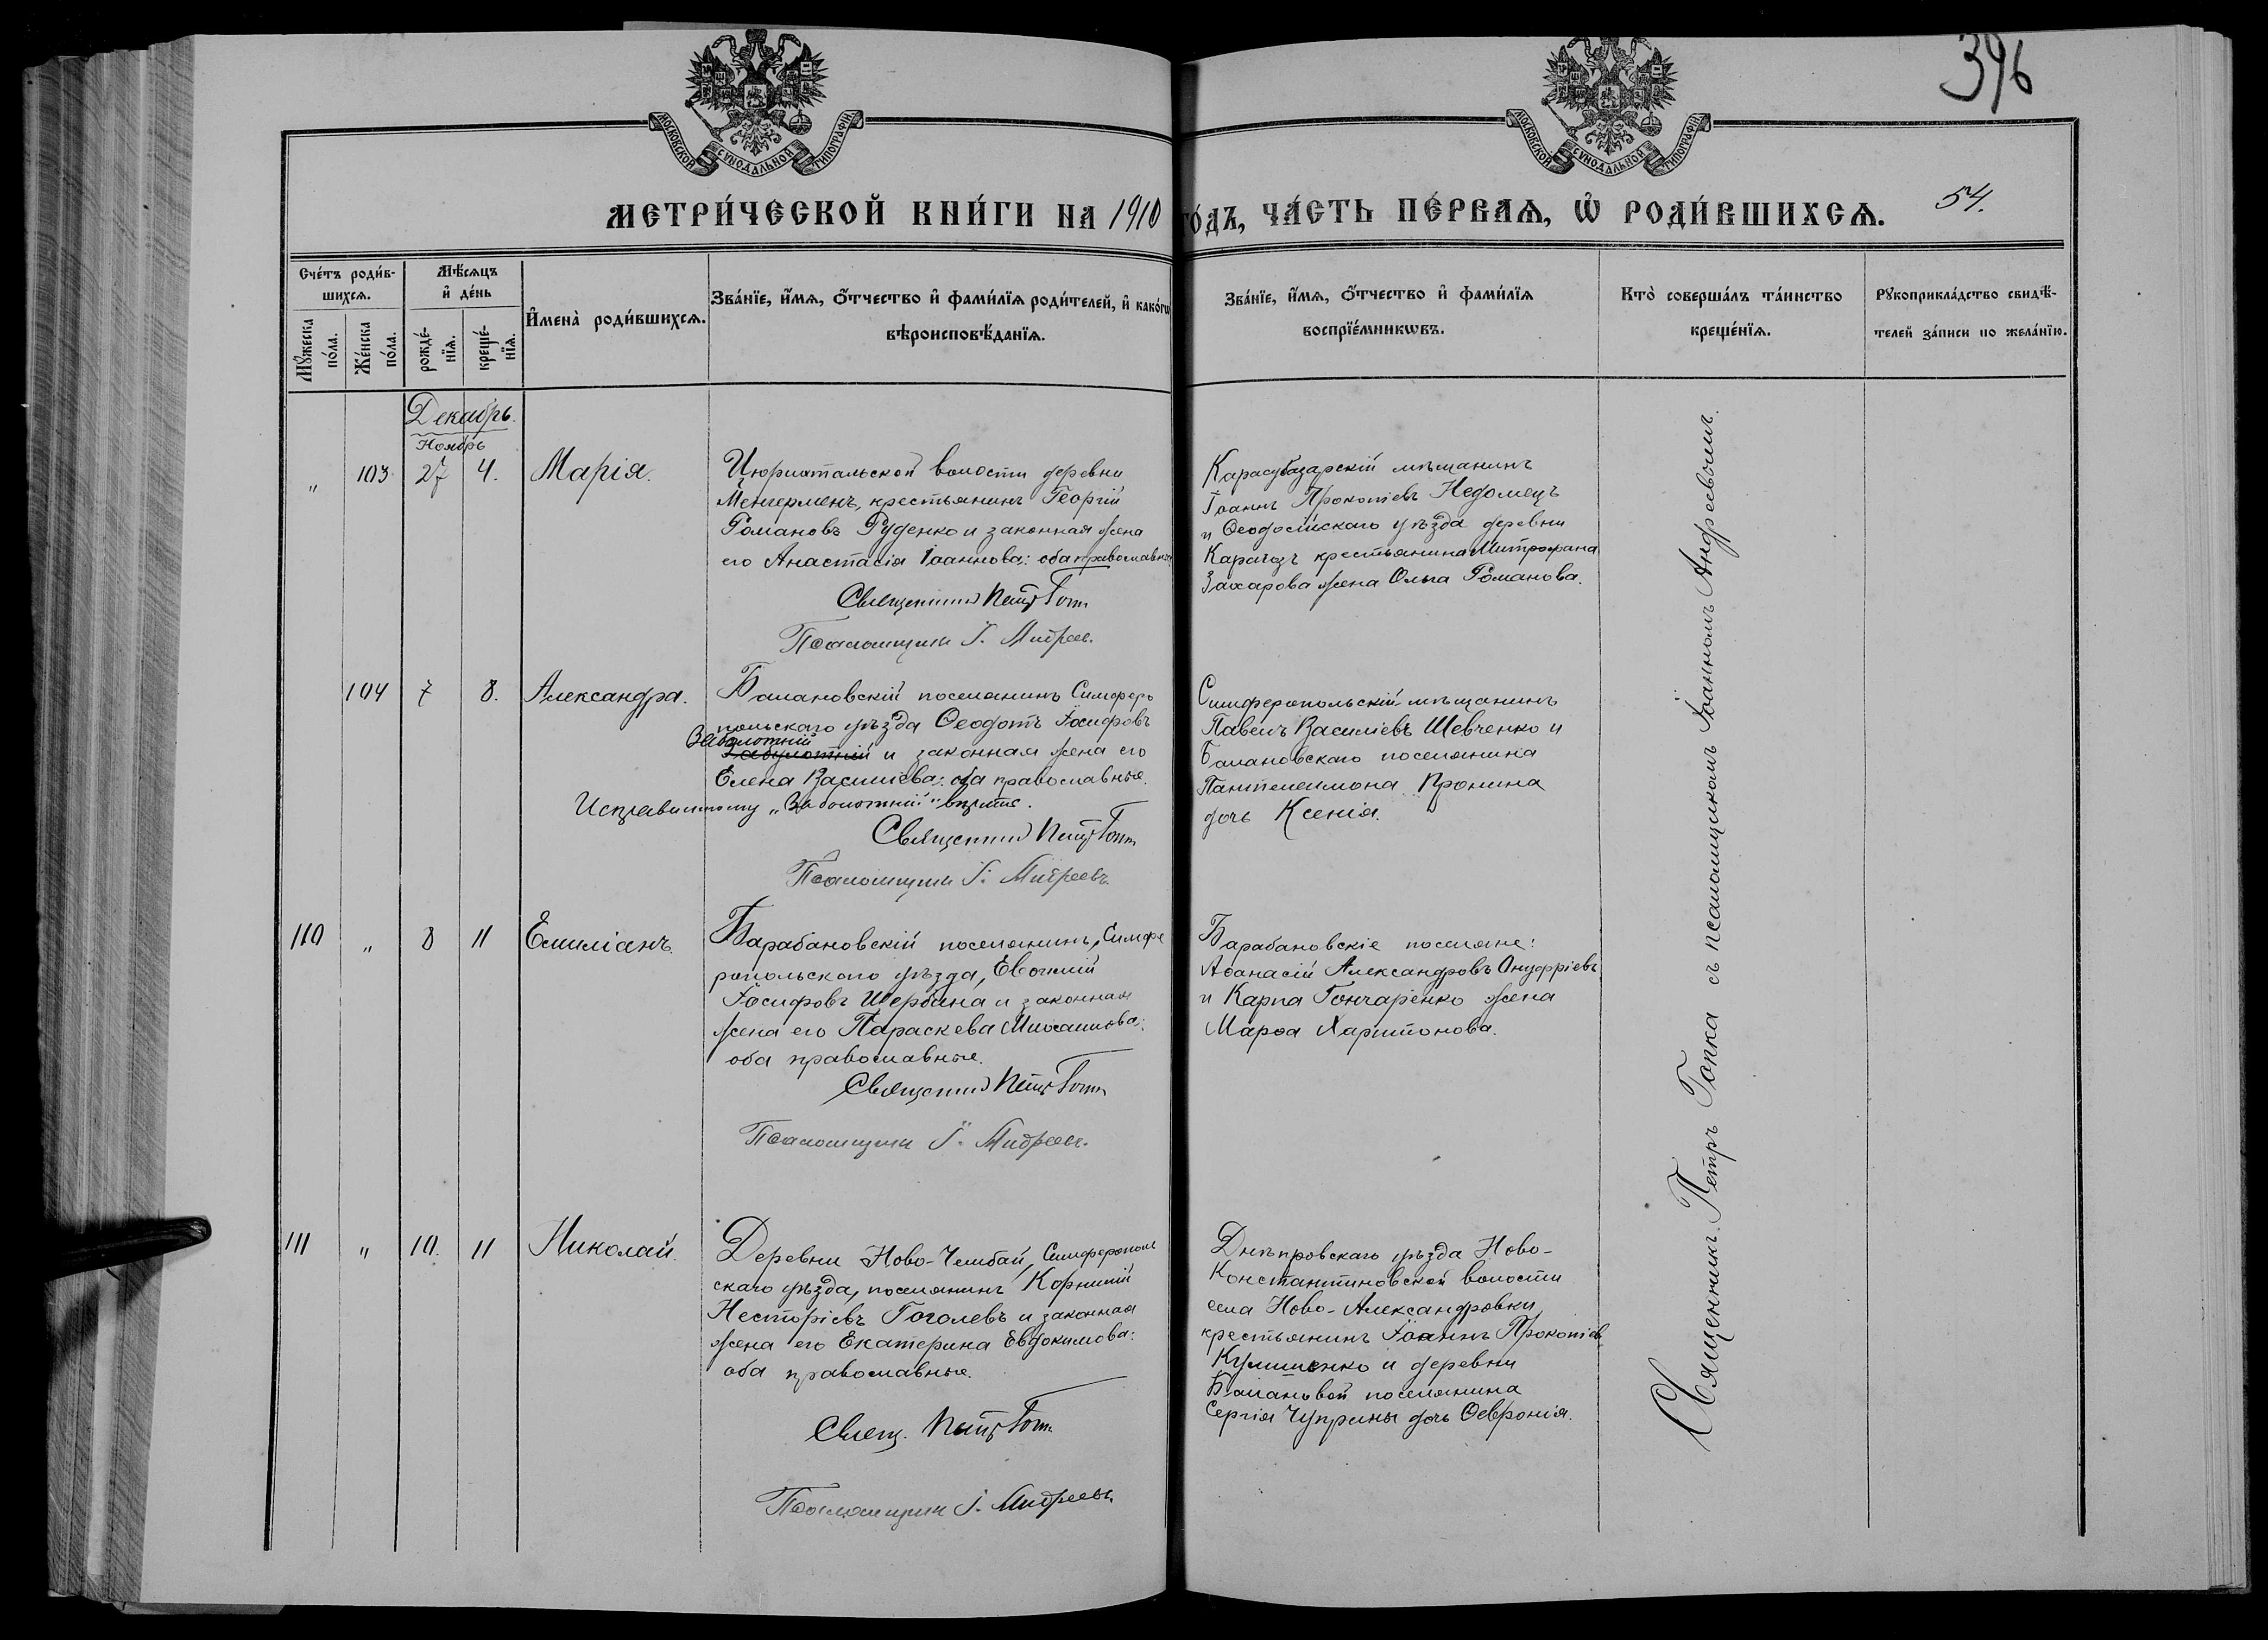 396
МОСКОВСКОЙ СѴНОДАЛЬНОЙ ТИПОГРАФІИ
МОСКОВСКОЙ СѴНОДАЛЬНОЙ ТИПОГРАФІИ
МЕТРИ́ЧЕСКОЙ КНИ́ГИ НА 1910 ГО́ДЪ, ЧА́СТЬ ПЕ́РВАѦ, Ѡ҆ РОДИ́ВШИХСѦ. 54.
Сче́тъ роди́в-
шихсѧ.
Мꙋ́жеска
по́ла.
Же́нска
по́ла.
Мѣ́сѧцъ
и҆ де́нь
рожде́-
нїѧ.
креще́-
нїѧ.
И҆мена̀ роди́вшихсѧ.
Зва́нїе, и҆́мѧ, ѻ҆́тчество и҆ фами́лїѧ роди́телей, и҆ како́гѡ
вѣроисповѣ́данїѧ.
Зва́нїе, и҆́мѧ, ѻ҆́тчество и҆ фами́лїѧ
воспрїе́мникѡвъ.
Кто̀ соверша́лъ та́инство
креще́нїѧ.
Рꙋкоприкла́дство свидѣ́-
телей за́писи по жела́нїю.
Декабрь.
Ноябрь
„ 103 27 4. Марія.
Цюрихтальской волости деревни
Менгерменъ, крестьянинъ Георгій
Романовъ Руденко и законная жена
его Анастасія Іоаннова: оба православные
Священникъ Петръ Гопка
Псаломщикъ І. Андреев.
Карасубазарскій мѣщанинъ
Іоаннъ Прокопіевъ Недомецъ
и Ѳеодосійскаго уѣзда деревни
Карагозъ крестьянина Митрофана
Захарова жена Ольга Романова.
104 7 8. Александра.
Балановскій поселянинъ Симферо
польскаго уѣзда Ѳеодотъ Іосифовъ
Заболотній
и законная жена его
Елена Василіева: оба православные.
Исправленному „Заболотній" вѣрить.
Священникъ Петръ Гопка
Псаломщикъ І. Андреевъ.
Симферопольскій мѣщанинъ
Павелъ Василіевъ Шевченко и
Балановскаго поселянина
Пантелеимона Пронина
дочь Ксенія.
110 „ 8 11 Емиліанъ.
Барабановскій поселянинъ, Симфе
ропольского уѣзда, Евѳимій
Іосифовъ Щербина и законная
жена его Параскева Михаилова:
оба православные.
Священникъ Петръ Гопка
Псаломщикъ І. Андреевъ.
Барабановскіе поселяне:
Аѳанасій Александровъ Онуфріевъ
и Карпа Гончаренко жена
Марѳа Харитонова.
111 „ 10. 11 Николай.
Деревни Ново-Чембай, Симферополь
скаго уѣзда, поселянинъ Корнилій
Несторіевъ Гоголевъ и законная
жена его Екатерина Евдокимова:
оба православные.
Свящ. Петръ Гопка
Псаломщикъ І. Андреевъ.
Днѣпровскаго уѣзда Ново-
Константиновской волости
села Ново-Александровки
крестьянинъ Іоаннъ Прокопіевъ
Кулишенко и деревни
Балановой поселянина
Сергія Чуприны дочь Ѳевронія.
Священникъ Петръ Гопка съ псаломщикомъ Іоанномъ Андреевымъ.